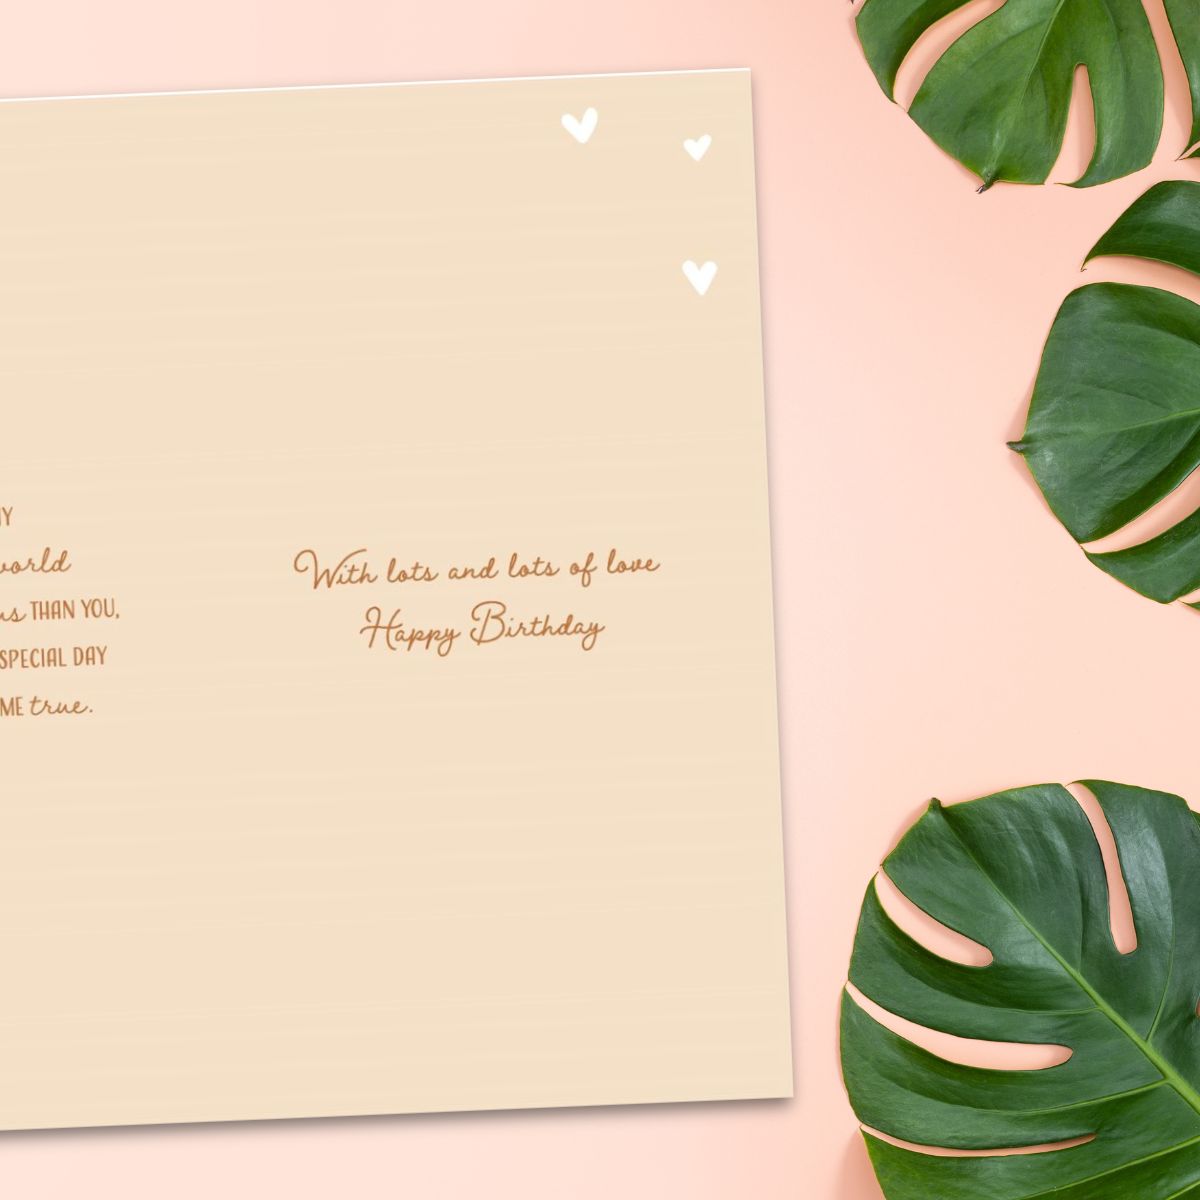 world
THAN YOU,
SPECIAL DAY
true.
With lots and lots of love
Happy Birthday